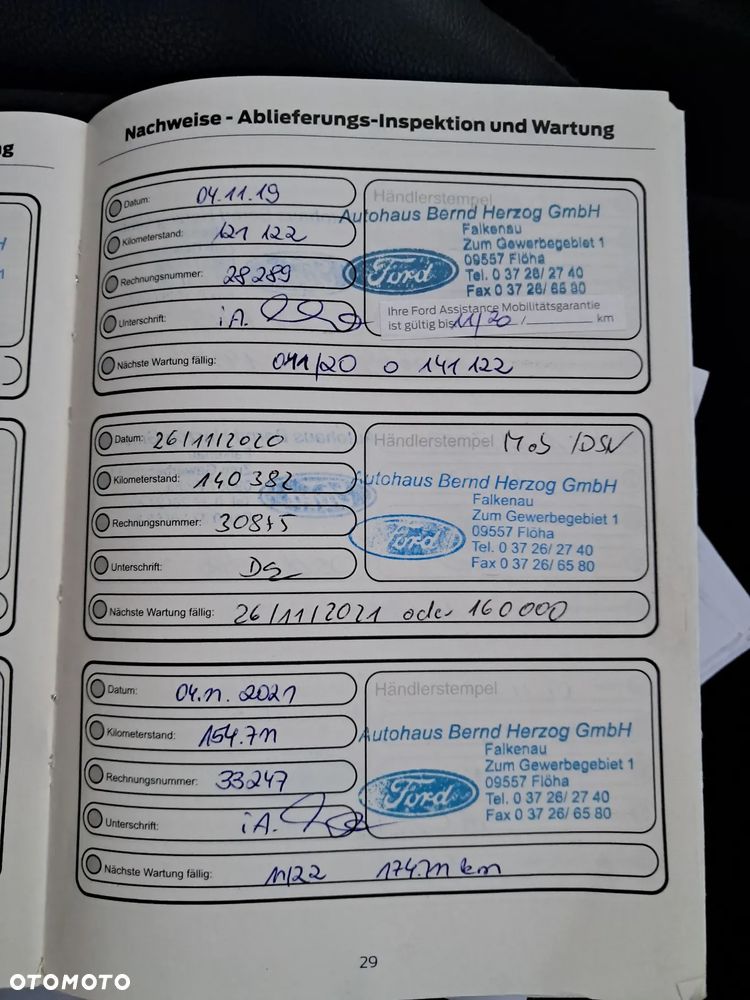 g
Nachweise - Ablieferungs-Inspektion und Wartung
Datum: 04.11.19
Kilometerstand: 121 122
Rechnungsnummer: 28289
Unterschrift: iA.
Händlerstempel
Autohaus Bernd Herzog GmbH
Falkenau
Zum Gewerbegebiet 1
09557 Flöha
Ford
Tel. 0 37 26/ 27 40
Fax 0 37 26/ 65 80
Ihre Ford Assistance Mobilitätsgarantie
ist gültig bis 11/20 / km
Nächste Wartung fällig: 041/20 o 141 122
Datum: 26/11/2020
Kilometerstand: 140 382
Rechnungsnummer: 30875
Unterschrift:
Händlerstempel Mob /DSN
Autohaus Bernd Herzog GmbH
Falkenau
Zum Gewerbegebiet 1
09557 Flöha
Ford
Tel. 0 37 26/ 27 40
Fax 0 37 26/ 65 80
Nächste Wartung fällig: 26/11/2021 oder 160000
Datum: 04.11.2021
Kilometerstand: 154.711
Rechnungsnummer: 33247
Unterschrift: iA.
Händlerstempel
Autohaus Bernd Herzog GmbH
Falkenau
Zum Gewerbegebiet 1
09557 Flöha
Ford
Tel. 0 37 26/ 27 40
Fax 0 37 26/ 65 80
Nächste Wartung fällig: 11/22 174.711 km
29
OTOMOTO